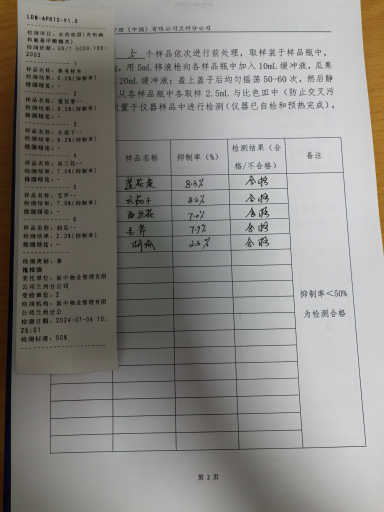 LDM-APRTS-V1.0
检测项目：农药残留(有机磷和氨基甲酸酯类)
检测依据：GB/T 5009.199-2003
1
样品名称：
检测结果：
检测结论：
2
样品名称：莲花菜
检测结果：8.3%(抑制率)
检测结论：
3
样品名称：长茄子
检测结果：8.2%(抑制率)
检测结论：
4
样品名称：西兰花
检测结果：7.0%(抑制率)
检测结论：
5
样品名称：毛芹
检测结果：7.9%(抑制率)
检测结论：
6
样品名称：胡瓜
检测结果：2.3%(抑制率)
检测结论：
检测类别：
委托单位：新中物业管理有限公司兰州分公司
受检单位：2
检测机构：新中物业管理有限公司兰州分公
检测日期：2024-07-04 10:
检测标准：50%
管理（中国）有限公司兰州分公司
5 个样品依次进行前处理，取样装于样品瓶中，
用 5mL 移液枪向各样品瓶中加入 10mL 缓冲液，瓜果
20mL 缓冲液；盖上盖子后均匀摇荡 50-60 次，然后静
从各样品瓶中各取样 2.5mL 与比色皿中（防止交叉污
放置于仪器样品中进行检测(仪器已自检和预热完成)。
样品名称 抑制率（%） 检测结果（合格/不合格） 备注
莲花菜 8.3% 合格
长茄子 8.2% 合格
西兰花 7.0% 合格
毛芹 7.9% 合格
胡瓜 2.3% 合格
抑制率＜50%
为检测合格
第 2 页